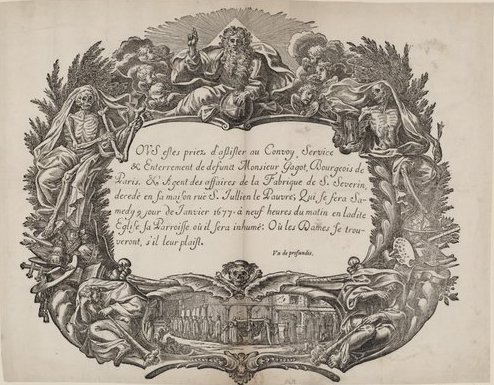 OUS estes priez d'assister au Convoy, Service
& Enterrement de defunct Monsieur Gagot, Bourgeois de
Paris, & Agent des affaires de la Fabrique de S. Severin,
decedé en sa maison rue S. Jullien le Pauvre; Qui se fera Sa-
medy 9 jour de Janvier 1677. à neuf heures du matin en ladite
Eglise sa Parroisse où il sera inhumé: Où les Dames se trou-
veront, s'il leur plaist.
Un de profundis.